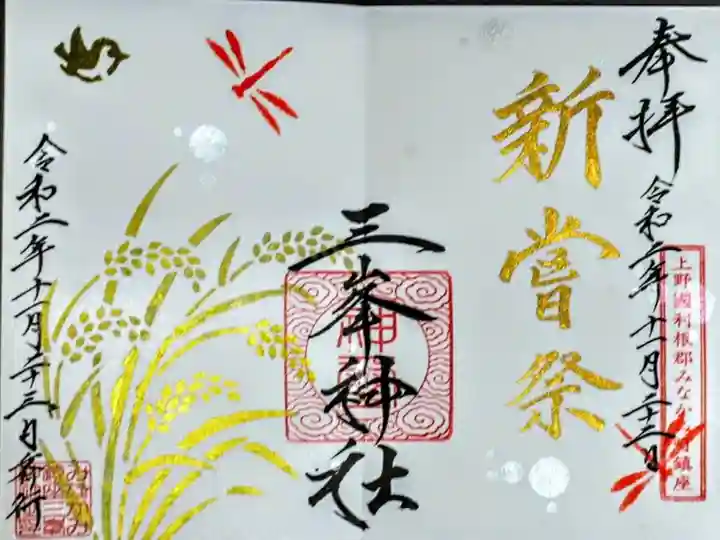 奉拝
令和二年十一月二十三日
上野國利根郡みなか
鎮座
新嘗祭
三峯神社
令和二年十一月二十三日斎行